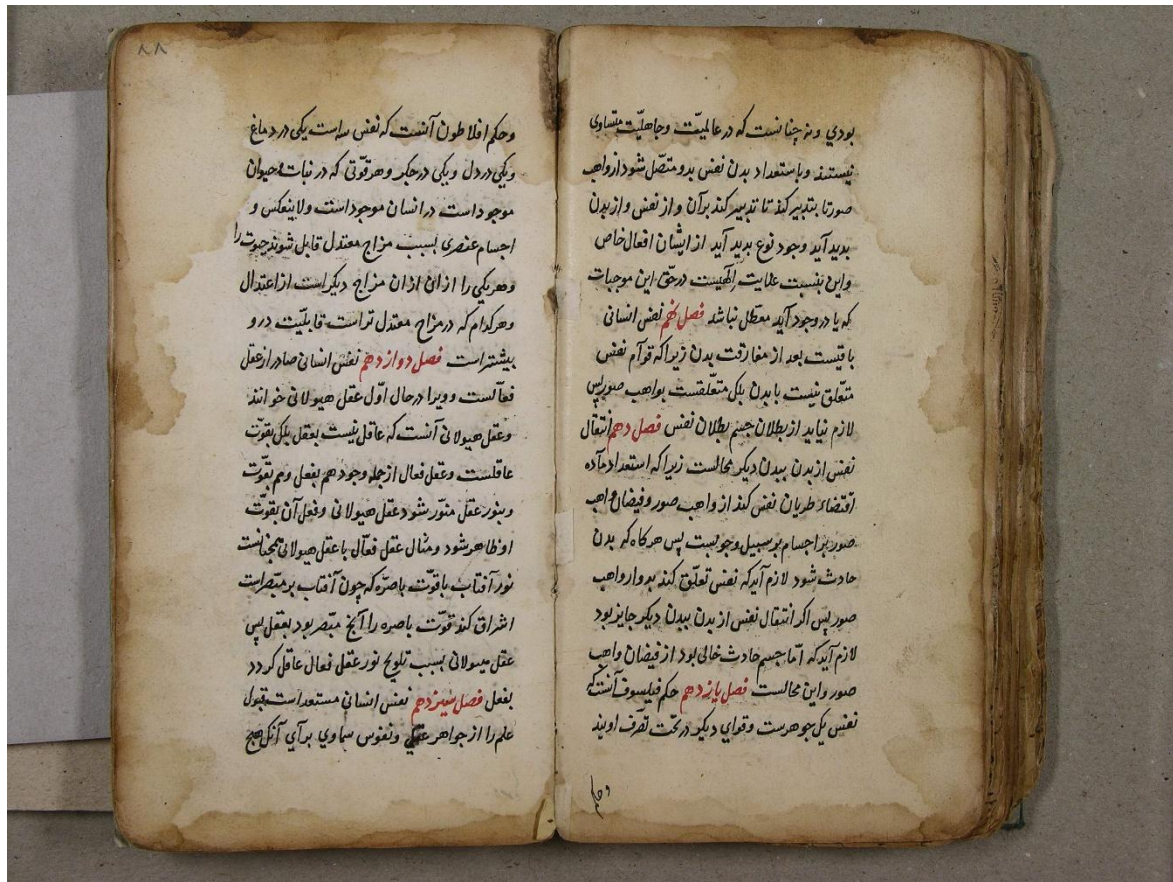 بودي ونه چنانست که در عالمیّت وجاهلیّت متساوی
نیستند وباستعداد بدن نفس بدو متصل شود از واهب
صور تا بتدبیر کند تا تدبیر کند برآن و از نفس و از بدن
بدید آید وجود نوع بدید آید از ایشان افعال خاص
واین بنسبت عنایت الهیست در حق این موجبات
که یا در وجود آید معطل نباشد فصل نهم نفس انسانی
باقیست بعد از مفارقت بدن زیرا که قوآم نفس
متعلق نیست با بدن بلک متعلقست بواهب صور پس
لازم نیاید از بطلان جسم بطلان نفس فصل دهم انتقال
نفس از بدن ببدن دیکر محالست زیرا که استعداد مآده
اقتضاء طریان نفس کند از واهب صور وفیضان واهب
صور بر اجسام بر سبیل وجوبست پس هرکاه که بدن
حادث شود لازم آید که نفس تعلّق کند بدو از واهب
صور پس اکر انتقال نفس از بدن ببدن دیکر جایز بود
لازم آید که امّا جسم حادث خالی بود از فیضان واهب
صور واین محالست فصل یازدهم حکم فیلسوف آنست که
نفس یک جوهرست وقوای دیکر در تحت تصرف اویند
وحکم
۸۸
وحکم افلاطون آنست که نفس سه است یکی در دماغ
ویکی در دل و یکی در جکر وهر قوّتی که در نبات وحیوان
موجود است در انسان موجود است ولا ینعکس و
اجسام عنصری بسبب مزاج معتدل قابل شوند حیوت را
وهر یکی را از ان از ان مزاج دیکر است از اعتدال
وهر کدام که در مزاج معتدل تر است قابلیّت درو
بیشتر است فصل دوازدهم نفس انسانی صادر از عقل
فعّالست وویرا در حال اوّل عقل هیولانی خوانند
وعقل هیولانی آنست که عاقل نیست بفعل بلک بقوّت
عاقلست وعقل فعال از جمله وجود هم بفعل وهم بقوّت
وبنور عقل منوّر شود عقل هیولانی وفعل آن بقوّت
او ظاهر شود ومثال عقل فعّال با عقل هیولانی همچنانست
نور آفتاب با قوّت باصره که چون آفتاب بر مبصراست
اشراق کند قوّت باصره را آنچ مبصر بود بفعل پس
عقل هیولانی بسبب تلویح نور عقل فعال عاقل کردد
بفعل فصل سیزدهم نفس انسانی مستعد است قبول
علم را از جواهر عقلی ونفوس سماوی برآی آنک هیچ